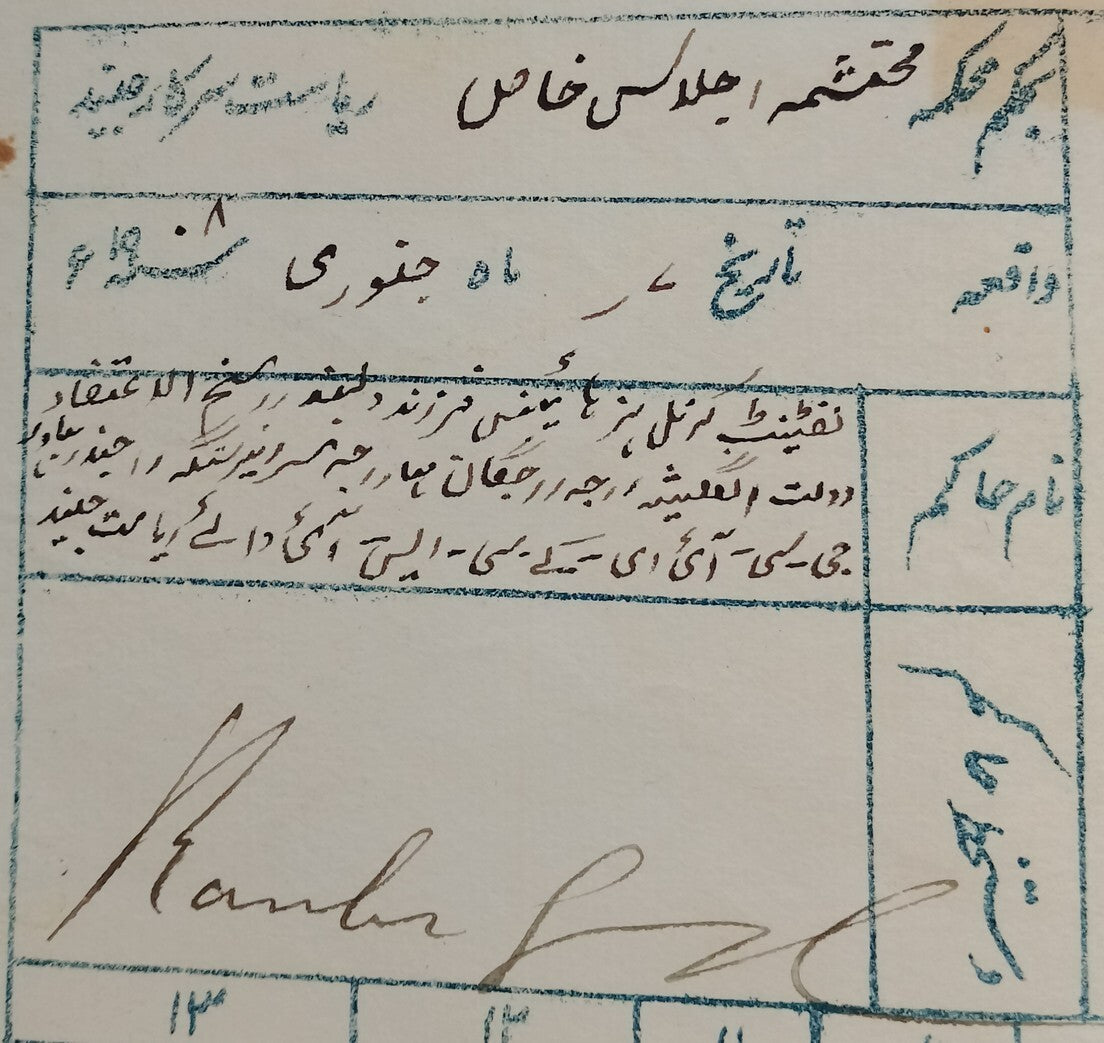 بحکم محکمہ محتشمہ اجلاس خاص ریاست سرکار جیند
واقعہ تاریخ ۷ ر ماہ جنوری سنہ ۱۹۰۸ء
نام حاکم
لفٹیننٹ کرنل ہز ہائینس فرزند دلبند راسخ الاعتقاد
دولت انگلیشیہ راجہ راجگان مہاراجہ سر رنبیر سنگھ راجیندر بہادر
جی - سی - آئی ای - کے - سی - ایس - آئی والئے ریاست جیند
دستخط حاکم
Ranbir Singh
۱۳ ۱۲ ۱۱